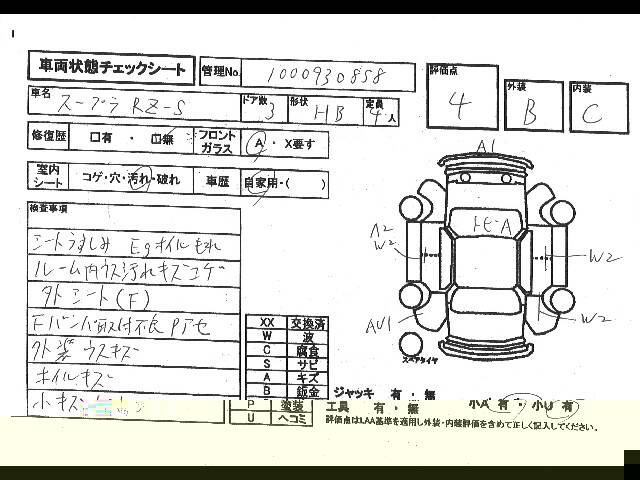 車両状態チェックシート 管理No. 1000930858
評価点 4 外装 B 内装 C
車名 スープラ RZ-S ドア数 3 形状 HB 定員 4人
修復歴 口有・口無 フロントガラス A・X要す
室内シート コゲ・穴・汚れ・破れ 車歴 自家用・( )
検査事項
Egオイルもれ
ルーム内ウス汚れキズコゲ
外装 ウスキズ
ホイルキズ
小キズ
XX 交換済
W 波
C 腐食
S サビ
A キズ
B 鈑金
P 塗装
U ヘコミ
A1
A2
W2
W2
W2
AU1
スペアタイヤ
ジャッキ 有・無
工具 有・無
小A 有・小U 有
評価点はLAA基準を適用し外装・内装評価を含めて正しく記入してください。